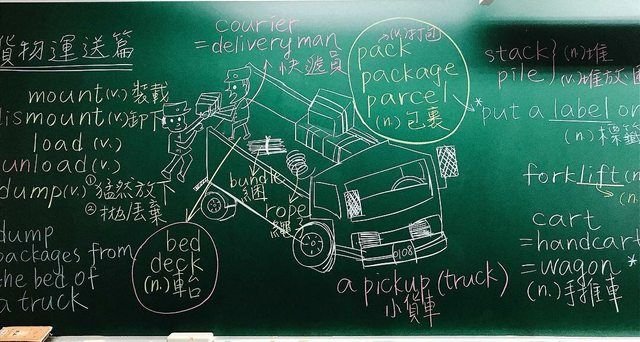 貨物運送篇
mount (v.) 裝載
dismount (v.) 卸下
load (v.)
unload (v.)
dump (v.) ①猛然放下
②拋/丟棄
dump
packages from
the bed of
a truck
courier
= deliveryman
快遞員
bundle
綑
rope
繩
bed
deck
(n.) 車台
(v.) 打包
pack
package
parcel
(n.) 包裹
0108
a pickup (truck)
小貨車
stack
pile
(n.) 堆
(v.) 堆放
*put a label on
(n.) 標籤
forklift (n.)
(n.)
cart
= handcart
= wagon *
(n.) 手推車